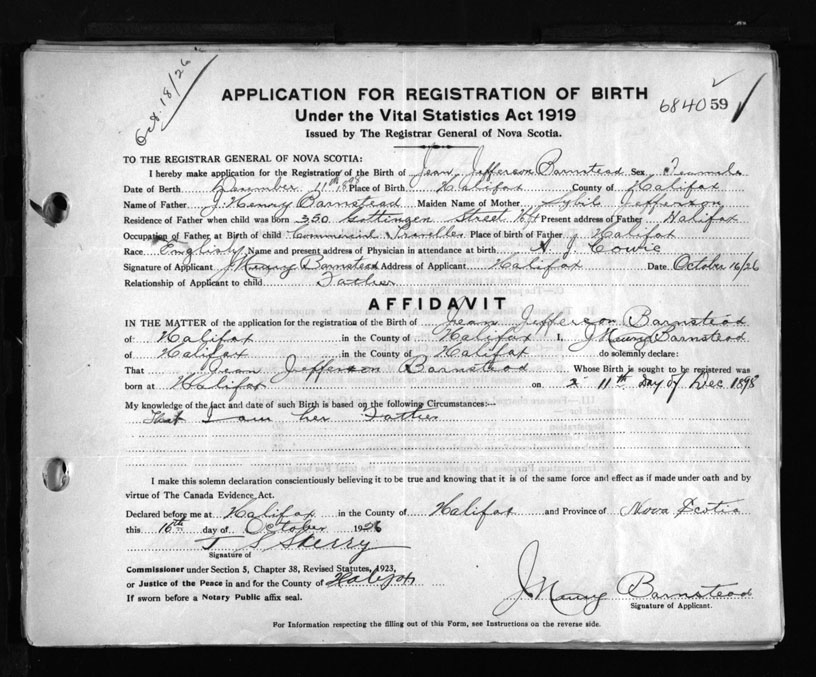 Oct 18/26
APPLICATION FOR REGISTRATION OF BIRTH
68405 59
Under the Vital Statistics Act 1919
Issued by The Registrar General of Nova Scotia.
TO THE REGISTRAR GENERAL OF NOVA SCOTIA:
I hereby make application for the Registration of the Birth of Jean Jefferson Barnstead Sex Feamale
Date of Berth December 11th 1898 Place of Birth Halifax County of Halifax
Name of Father J. Henry Barnstead Maiden Name of Mother Sybil Jefferson
Residence of Father when child was Born 350 Gottingen Street Present address of Father Halifax
Occupation of Father at Birth of child Commercial Traveller Place of birth of Father Halifax
Race English Name and present address of Physician in attendance at birth A. J. Cowie
Signature of Applicant J Henry Barnstead Address of Applicant Halifax Date October 16/26
Relationship of Applicant to child Father
AFFIDAVIT
IN THE MATTER of the application for the registration of the Birth of Jean Jefferson Barnstead
of Halifax in the County of Halifax I, J Henry Barnstead
of Halifax in the County of Halifax do solemnly declare:
That Jean Jefferson Barnstead Whose Birth is sought to be registered was
born at Halifax on 11th Day of Dec 1898
My knowledge of the fact and date of such Birth is based on the following Circumstances:—
That I am her Father
I make this solemn declaration conscientiously believing it to be true and knowing that it is of the same force and effect as if made under oath and by
virtue of The Canada Evidence Act.
Declared before me at Halifax in the County of Halifax and Province of Nova Scotia
this 16th day of October 1926
T S Sherry
Signature of
Commissioner under Section 5, Chapter 38, Revised Statutes, 1923,
or Justice of the Peace in and for the County of Halifax
If sworn before a Notary Public affix seal.
J Henry Barnstead
Signature of Applicant.
For Information respecting the filling out of this Form, see Instructions on the reverse side.